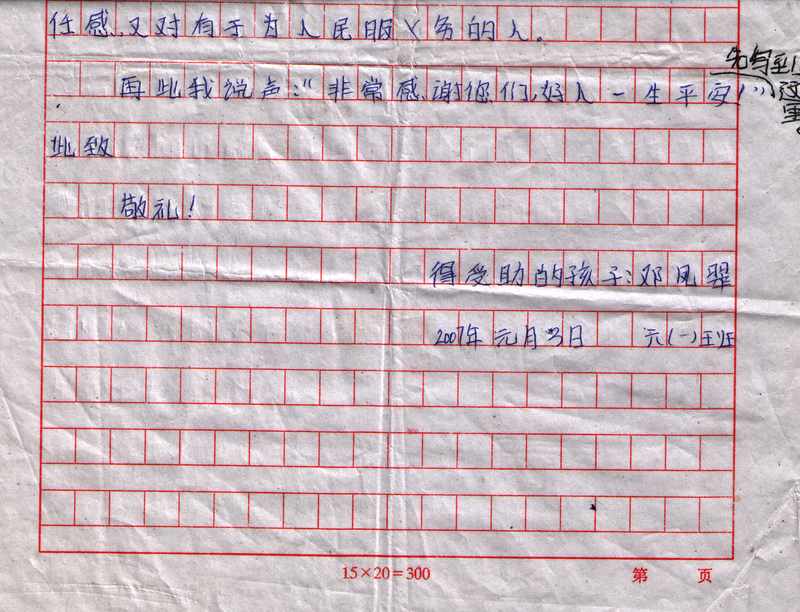 任感,又对有于为人民服义务的人。
再此我说声:“非常感谢您们,好人一生平安!”
先写到这里。
此致
敬礼!
得受助的孩子:邓凤翠
2007年元月3日 六(一)班
15×20=300 第 页